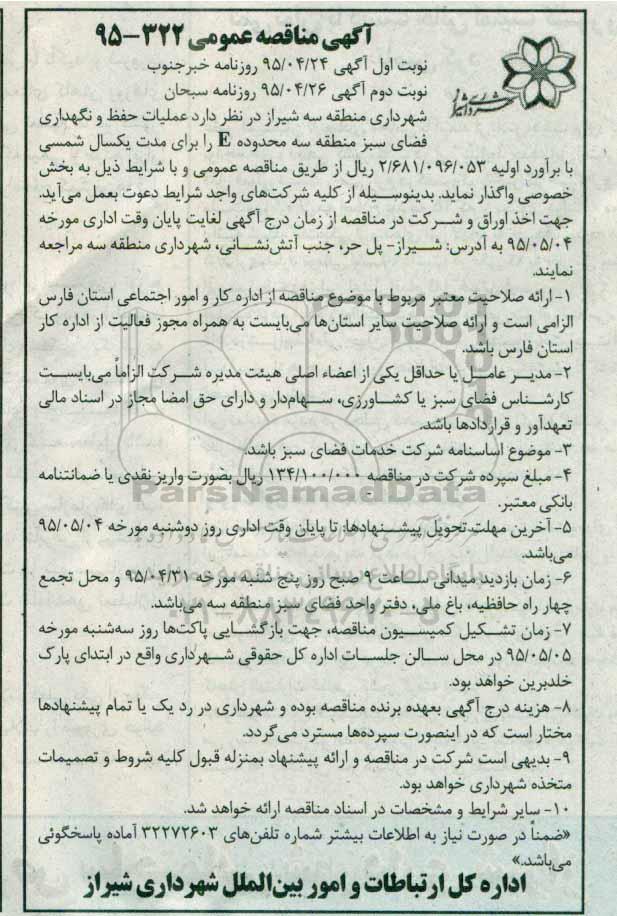 آگهی مناقصه عمومی ۳۲۲-۹۵
نوبت اول آگهی ۹۵/۰۴/۲۴ روزنامه خبرجنوب
نوبت دوم آگهی ۹۵/۰۴/۲۶ روزنامه سبحان
شهرداری شیراز
شهرداری منطقه سه شیراز در نظر دارد عملیات حفظ و نگهداری
فضای سبز منطقه سه محدوده E را برای مدت یکسال شمسی
با برآورد اولیه ۲/۶۸۱/۰۹۶/۰۵۳ ریال از طریق مناقصه عمومی و با شرایط ذیل به بخش
خصوصی واگذار نماید. بدینوسیله از کلیه شرکت‌های واجد شرایط دعوت بعمل می‌آید.
جهت اخذ اوراق و شرکت در مناقصه از زمان درج آگهی لغایت پایان وقت اداری مورخه
۹۵/۰۵/۰۴ به آدرس: شیراز- پل حر، جنب آتش‌نشانی، شهرداری منطقه سه مراجعه
نمایند.
۱- ارائه صلاحیت معتبر مربوط با موضوع مناقصه از اداره کار و امور اجتماعی استان فارس
الزامی است و ارائه صلاحیت سایر استان‌ها می‌بایست به همراه مجوز فعالیت از اداره کار
استان فارس باشد.
۲- مدیر عامل یا حداقل یکی از اعضاء اصلی هیئت مدیره شرکت الزاماً می‌بایست
کارشناس فضای سبز یا کشاورزی، سهام‌دار و دارای حق امضا مجاز در اسناد مالی
تعهدآور و قراردادها باشد.
۳- موضوع اساسنامه شرکت خدمات فضای سبز باشد.
۴- مبلغ سپرده شرکت در مناقصه ۱۳۴/۱۰۰/۰۰۰ ریال بصورت واریز نقدی یا ضمانتنامه
بانکی معتبر.
ParsNamadData
۵- آخرین مهلت تحویل پیشنهادها: تا پایان وقت اداری روز دوشنبه مورخه ۹۵/۰۵/۰۴
می‌باشد.
۶- زمان بازدید میدانی ساعت ۹ صبح روز پنج شنبه مورخه ۹۵/۰۴/۳۱ و محل تجمع
چهار راه حافظیه، باغ ملی، دفتر واحد فضای سبز منطقه سه می‌باشد.
۷- زمان تشکیل کمیسیون مناقصه، جهت بازگشایی پاکت‌ها روز سه‌شنبه مورخه
۹۵/۰۵/۰۵ در محل سالن جلسات اداره کل حقوقی شهرداری واقع در ابتدای پارک
خلدبرین خواهد بود.
۸- هزینه درج آگهی بعهده برنده مناقصه بوده و شهرداری در رد یک یا تمام پیشنهادها
مختار است که در اینصورت سپرده‌ها مسترد می‌گردد.
۹- بدیهی است شرکت در مناقصه و ارائه پیشنهاد بمنزله قبول کلیه شروط و تصمیمات
متخذه شهرداری خواهد بود.
۱۰- سایر شرایط و مشخصات در اسناد مناقصه ارائه خواهد شد.
«ضمناً در صورت نیاز به اطلاعات بیشتر شماره تلفن‌های ۳۲۲۷۲۶۰۳ آماده پاسخگوئی
می‌باشد.»
اداره کل ارتباطات و امور بین‌الملل شهرداری شیراز